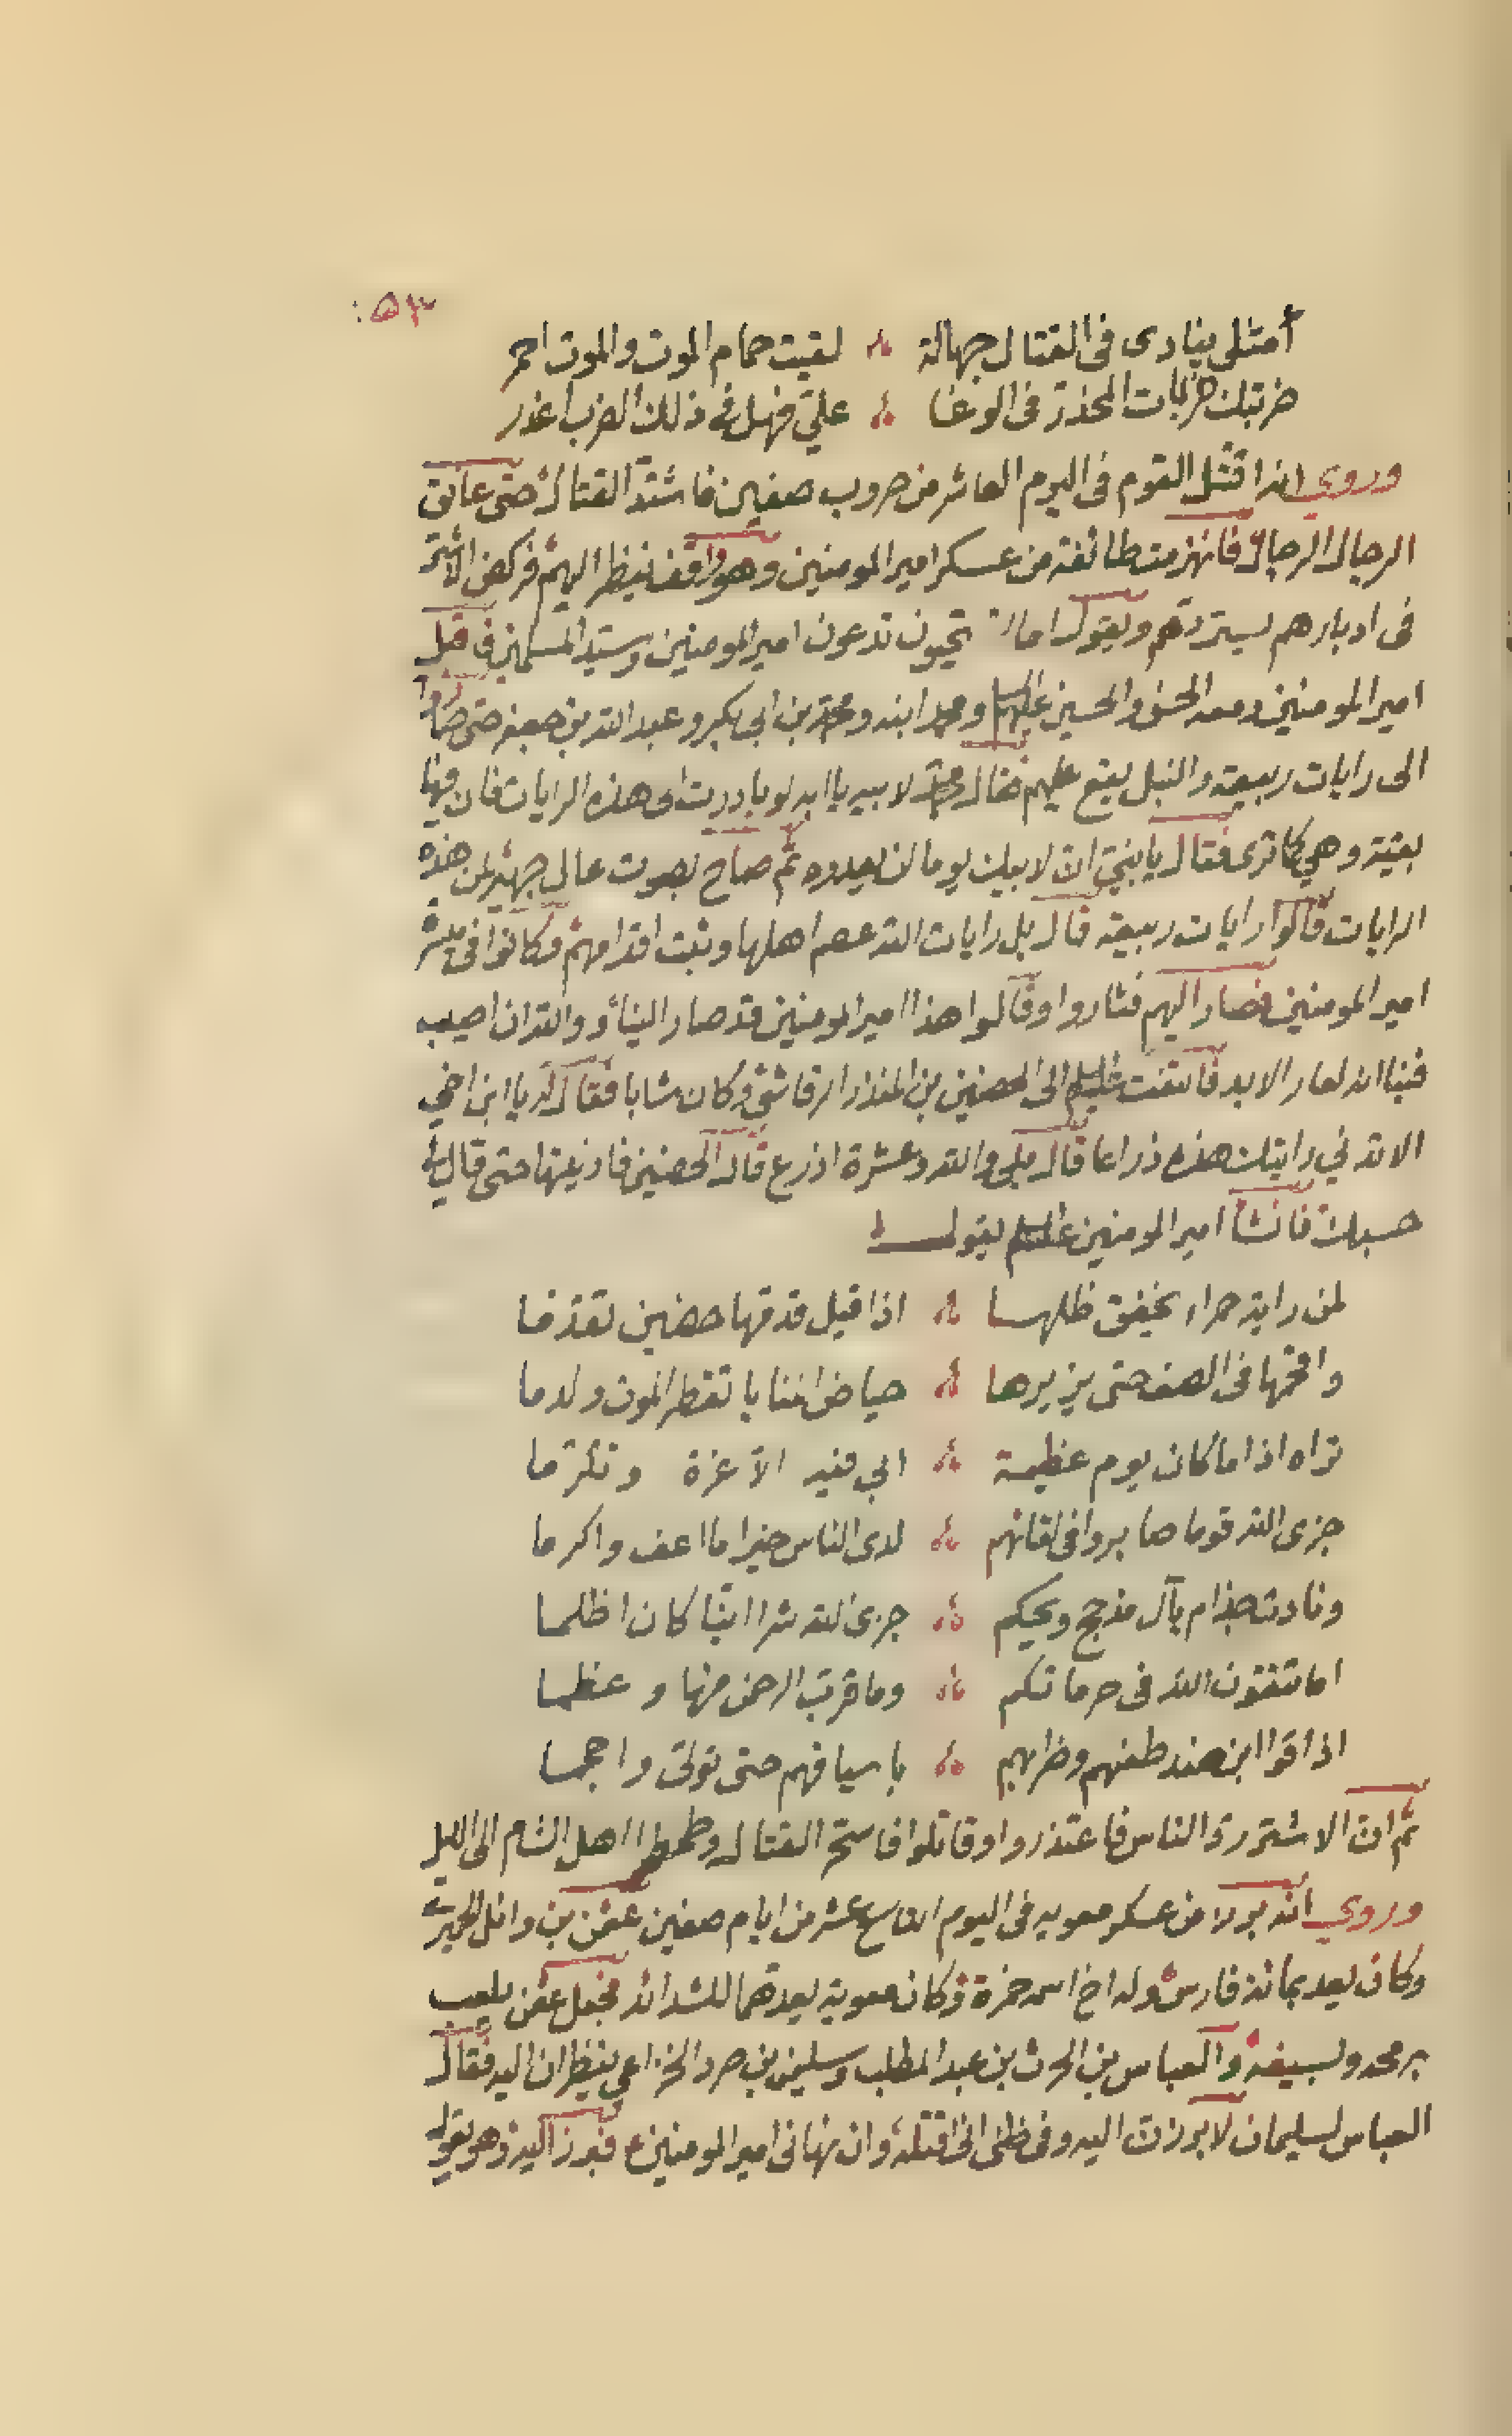 ٥٣
أمثلي ينادى فى القتال جهالة لقيت حمام الموت والموت احمر
ضربتك ضربات المحذر فى الوغا علي فهل فى ذلك الضرب اعذر
وروى انه اقتتل القوم فى اليوم العاشر من حروب صفين فاشتد القتال حتى عانق
الرجال الرجال فانهزمت طائفة من عسكر امير المومنين وهو واقف ينظر اليهم فركض الاشتر
فى ادبارهم يستردهم ويقول اما تستحيون تدعون امير المومنين وسيد المسلمين فى قبل
امير المومنين ومعه الحسن والحسين عليهما ومحمد ابنه ومحمد بن ابى بكر وعبد الله بن جعفر حتى صاروا
الى رايات ربيعة والنبل يقع عليهم فقال محمد لابيه يا ابه لو بادرت الى هذه الرايات فان فيها
بقية وهي كما ترى فقال يا بني ان لابيك يوما لن يعدوه ثم صاح بصوت عال جهير لمن هذه
الرايات قالوا رايات ربيعة قال بل رايات الله عصم اهلها وثبت اقدامهم وكانوا فى ميسرة
امير المومنين فصار اليهم فثاروا وقالوا هذا امير المومنين قد صار الينا والله ان اصيب
فينا انه لعار الابد فالتفت عليه الى الحضين بن المنذر الرقاشي وكان شابا فقال له يا ابن اخي
الا تدني رايتك هذه ذراعا قال بلى والله وعشرة اذرع قال الحضين فادنيتها حتى قال لي
حسبك فانشأ امير المومنين عليه يقول
لمن راية حمراء يخفق ظلها اذا قيل قدمها حضين تقدما
واقحمها فى الصف حتى يزيرها حياض المنايا تقطر الموت والدما
تراه اذا ما كان يوم عظيمة ابى فيه الا عزة وتكرما
جزى الله قوما صابروا فى لقائهم لدى الناس خيرا ما اعف واكرما
ونادت جذام يآل مذحج ويحكم جزى الله شرا اينا كان اظلما
اما تتقون الله فى حرماتكم وما قرب الرحمن منها وعظما
اذاقوا ابن هند طعنهم وضرابهم باسيافهم حتى تولى واحجما
ثم ان الاشتر رد الناس فاعتذروا وقاتلوا فاستحر القتال اهل الشام الى الليل
وروى انه من عسكر معويه فى اليوم التاسع عشر من ايام صفين عثمن بن وائل الحميرى
وكان يعد بمائة فارس وله اخ اسمه حمزة وكان معوية يعدهما للشدائد فجعل عثمن يلعب
برمحه وبسيفه والعباس بن الحرث بن عبد المطلب وسليمن بن صرد الخزاعي ينظران اليه فقال
العباس لسليمان لابرزن اليه وفى ظنى انى اقتله وان نهانى امير المومنين فبرز اليه وهو يقول